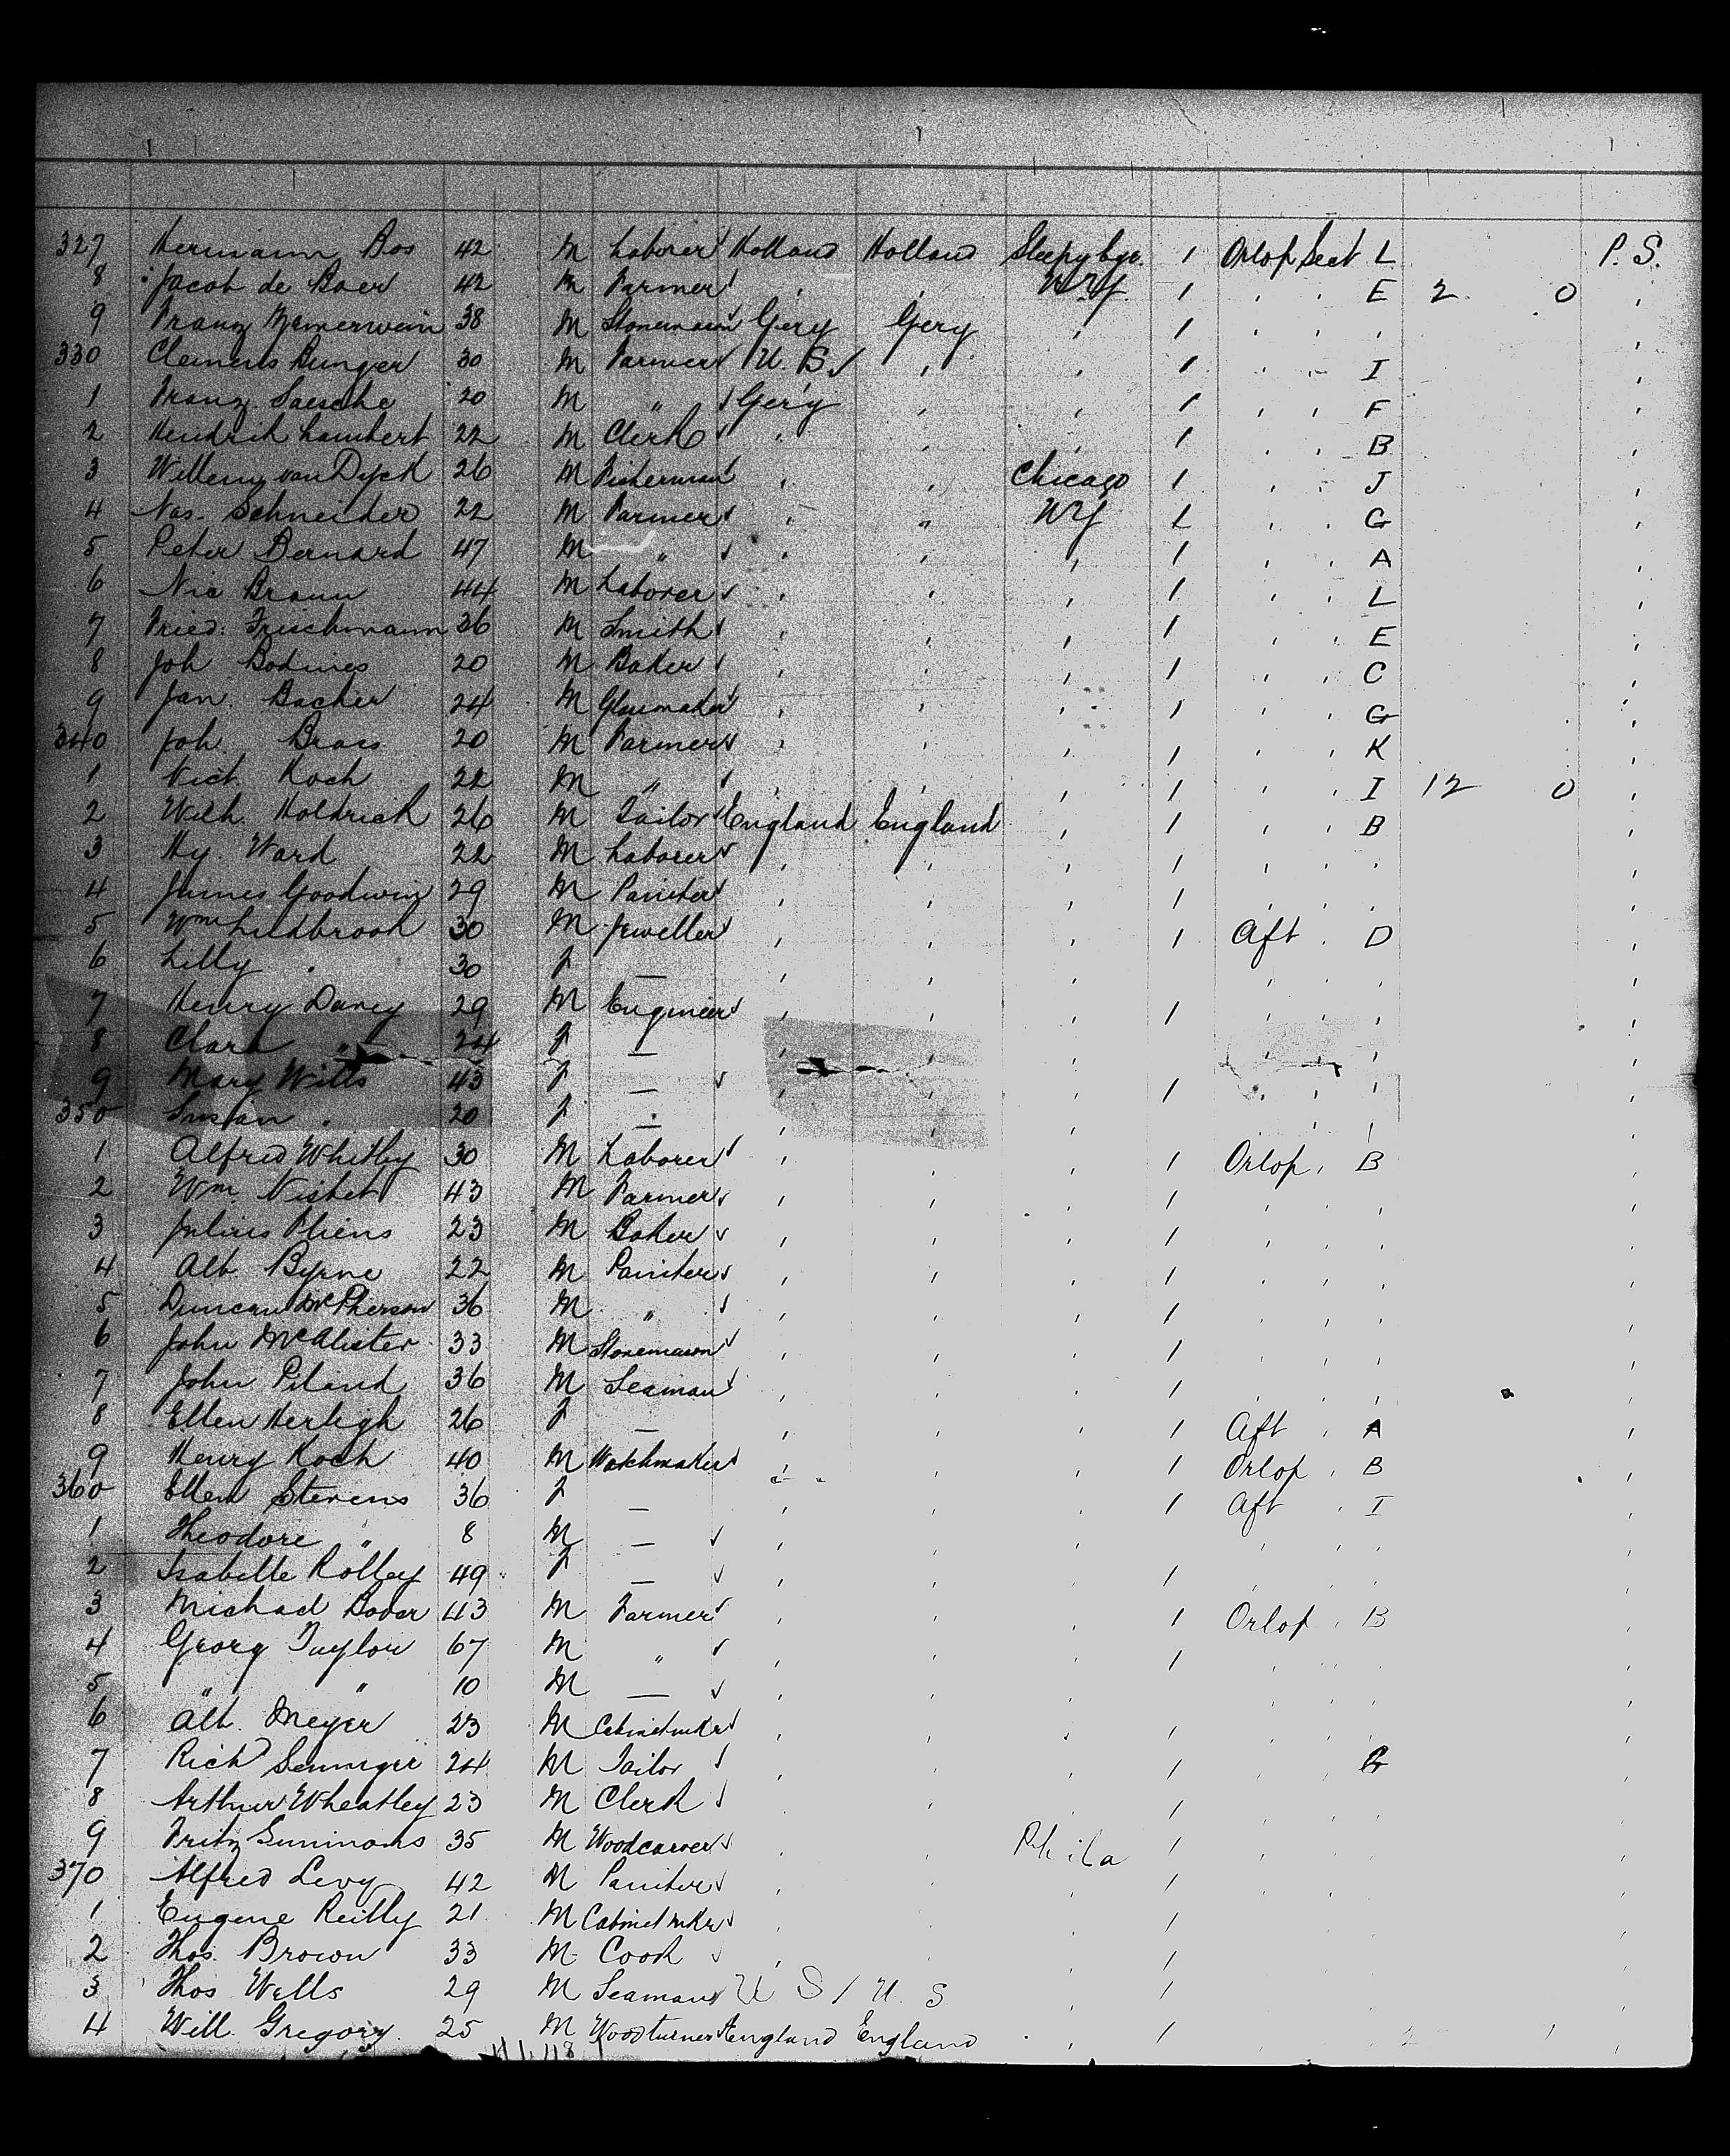 327 Hermann Bos 42 M Laborer Holland Holland 1 Orlop Sect L P. S.
8 Jacob de Boer 42 M Farmer ' ' NY 1 ' ' E 2 0 '
9 Franz 38 M Stonemason Gery Gery ' 1 ' ' ' '
330 Clemens Bunger 30 M Farmer U. S. ' ' 1 ' ' I '
1 Franz Saesche 20 M " Gery ' ' 1 ' ' F '
2 Hendrik Lambert 22 M Clerk ' ' ' 1 ' ' B '
3 Willem van Dyck 26 M Fisherman ' ' Chicago 1 ' ' J '
4 Nas. Schneider 22 M Farmer ' " NY 1 ' ' G '
5 Peter Bernard 47 M " ' ' ' 1 ' ' A '
6 Nic Braun 44 M Laborer ' ' ' 1 ' ' L '
7 Fried: Frischmann 36 M Smith ' ' ' 1 ' ' E '
8 Joh Bodines 20 M Baker ' ' ' 1 ' ' C '
9 Jan. Backer 24 M Glassmaker ' ' ' 1 ' ' G '
340 Joh. Brass 20 M Farmer ' ' ' 1 ' ' K '
1 Nich. Koch 22 M " ' ' ' 1 ' ' I 12 0 '
2 Wilh. Holdrich 26 M Tailor England England ' 1 ' ' B '
3 Hy. Ward 22 M Laborer ' ' ' 1 ' ' ' '
4 James Goodwin 29 M Painter ' ' ' 1 ' ' ' '
5 Wm 30 M Jeweller ' ' ' 1 Aft ' D '
6 Lilly ' 30 f — ' ' ' ' ' ' '
7 Henry Darey 29 M Engineer ' ' ' 1 ' ' ' '
8 Clara " 24 f — ' ' ' ' ' ' '
9 Mary Wills 43 f — ' ' ' 1 ' ' ' '
350 Susan ' 20 f — ' ' ' ' ' ' '
1 Alfred Whitley 30 M Laborer ' ' ' 1 Orlop ' B '
2 Wm Nisbet 43 M Farmer ' ' ' 1 ' ' ' '
3 Julius Pliens 23 M Baker ' ' ' 1 ' ' ' '
4 Alb. Byrne 22 M Painter ' ' ' 1 ' ' ' '
5 Duncan McPherson 36 M " ' ' ' 1 ' ' ' '
6 John McAlister 33 M Stonemason ' ' ' 1 ' ' ' '
7 John Piland 36 M Seaman ' ' ' 1 ' ' ' '
8 Ellen Herligh 26 f — ' ' ' 1 Aft ' A '
9 Henry Koch 40 M Watchmaker ' ' ' 1 Orlop ' B '
360 Ellen Stevens 36 f — ' ' ' 1 Aft ' I '
1 Theodore " 8 M — ' ' ' ' ' ' '
2 Isabelle Rolley 49 f — ' ' ' 1 ' ' ' '
3 Michael Bader 43 M Farmer ' ' ' 1 Orlop ' B '
4 Georg Taylor 67 M " ' ' ' 1 ' ' ' '
5 " " 10 M — ' ' ' ' ' ' '
6 Alb. Meyer 23 M Cabinetmkr ' ' ' 1 ' ' ' '
7 Rich 24 M Tailor ' ' ' 1 ' ' G '
8 Arthur Wheatley 23 M Clerk ' ' ' 1 ' ' ' '
9 Fritz Simmons 35 M Woodcarver ' ' Phila 1 ' ' ' '
370 Alfred Levy 42 M Painter ' ' ' 1 ' ' ' '
1 Eugene Reilly 21 M Cabinetmkr ' ' ' 1 '
2 Thos. Brown 33 M Cook ' ' ' 1 '
3 Thos Wells 29 M Seaman U S / U. S ' 1 '
4 Will. Gregory 25 M Woodturner England England ' 1 '